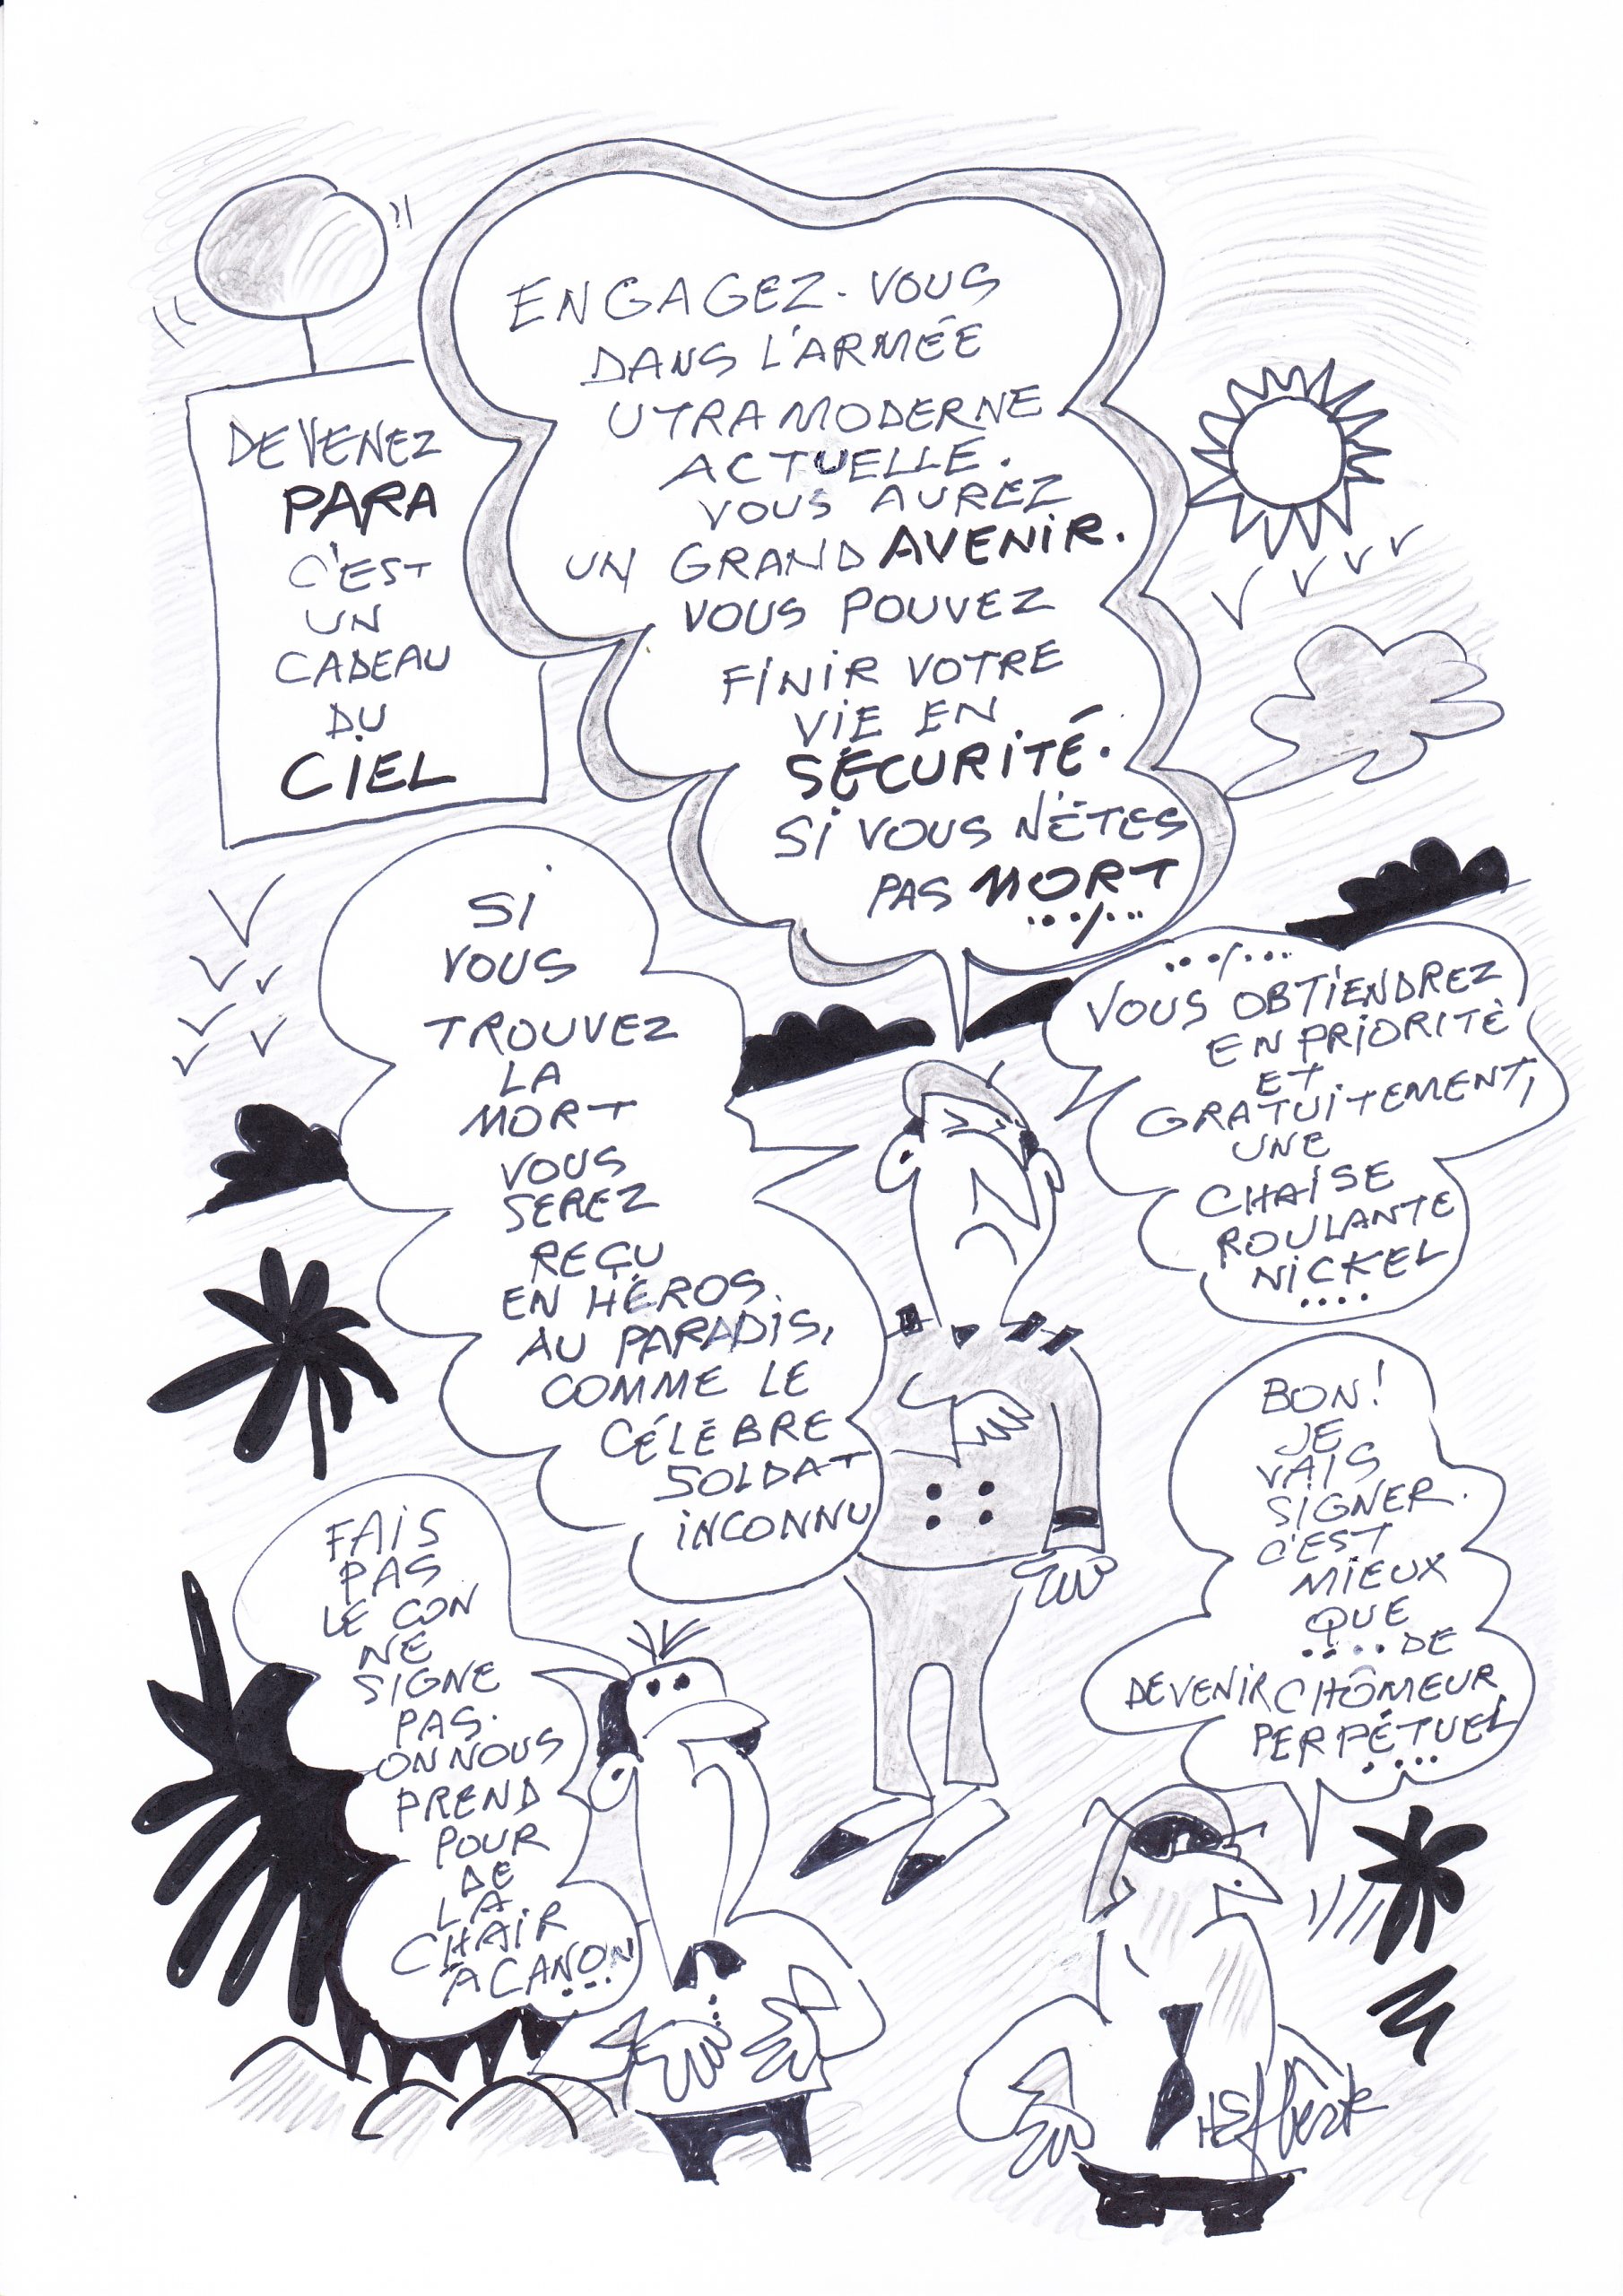 DEVENEZ
PARA
C'EST
UN
CADEAU
DU
CIEL
ENGAGEZ-VOUS
DANS L'ARMÉE
UTRAMODERNE
ACTUELLE.
VOUS AUREZ
UN GRAND AVENIR.
VOUS POUVEZ
FINIR VOTRE
VIE EN
SÉCURITÉ.
SI VOUS N'ÊTES
PAS MORT
...../.....
...../.....
VOUS OBTIENDREZ
EN PRIORITÉ
ET
GRATUITEMENT,
UNE
CHAISE
ROULANTE
NICKEL
....
SI
VOUS
TROUVEZ
LA
MORT
VOUS
SEREZ
REÇU
EN HÉROS
AU PARADIS,
COMME LE
CÉLÈBRE
SOLDAT
INCONNU
FAIS
PAS
LE CON
NE
SIGNE
PAS.
ON NOUS
PREND
POUR
DE
LA
CHAIR
A CANON
...
BON!
JE
VAIS
SIGNER.
C'EST
MIEUX
QUE
.... DE
DEVENIR CHÔMEUR
PERPÉTUEL
....